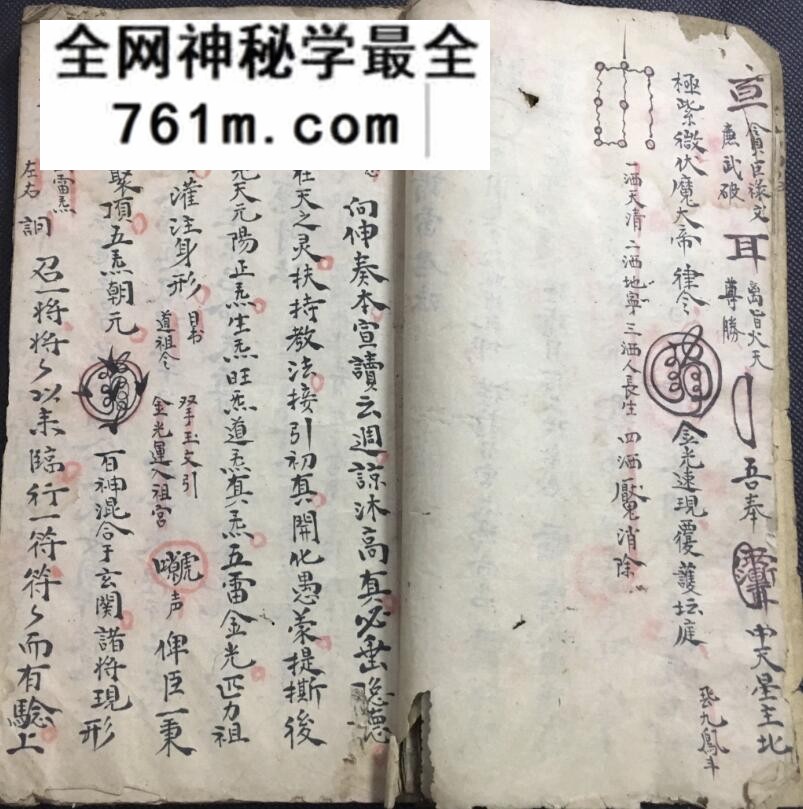 全网神秘学最全
761m.com
亘 貪巨祿文
廉武破
耳
尊勝
吾奉
中天星主北
極紫微伏魔大帝 律令
金光速現覆護坛庭
一洒天清 二洒地寧 三洒人長生 四洒魘消除
向伸奏本宣讀云週諒沐高真必垂隐德
在天之灵扶持教法接引初真開化愚蒙提撕後
元天元陽正炁生炁旺炁道炁真炁五雷金光匹力祖
灌注身形
道祖令
双手玉文引
金光運入祖宮
声
俾臣一秉
聚頂五炁朝元
百神混合于玄関諸將現形
雷炁
左右
召一将将々以来臨行一符符々而有驗上